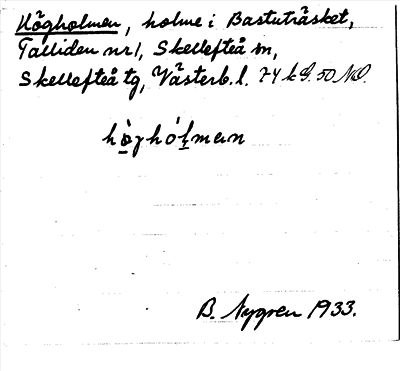 Högholmen, holme i Bastuträsket,
Talliden nr 1, Skellefteå sn,
Skellefteå tg, Västerb. l. 74 k S. 50 NO.
B. Nygren 1933.